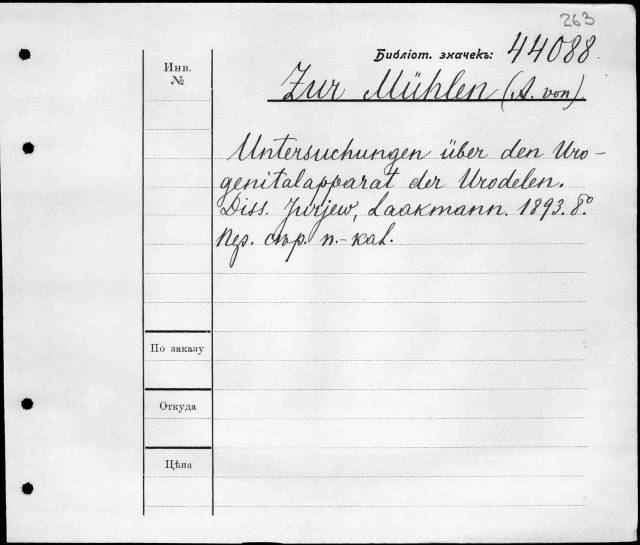 263
Библіот. значекъ: 44088.
Инв.
№
Zur Mühlen (A. von).
Untersuchungen über den Uro-
genitalapparat der Urodelen.
Diss. Jurjew, Laakmann. 1893. 8.°
Пер. стр. n.-kal.
По заказу
Откуда
Цѣна